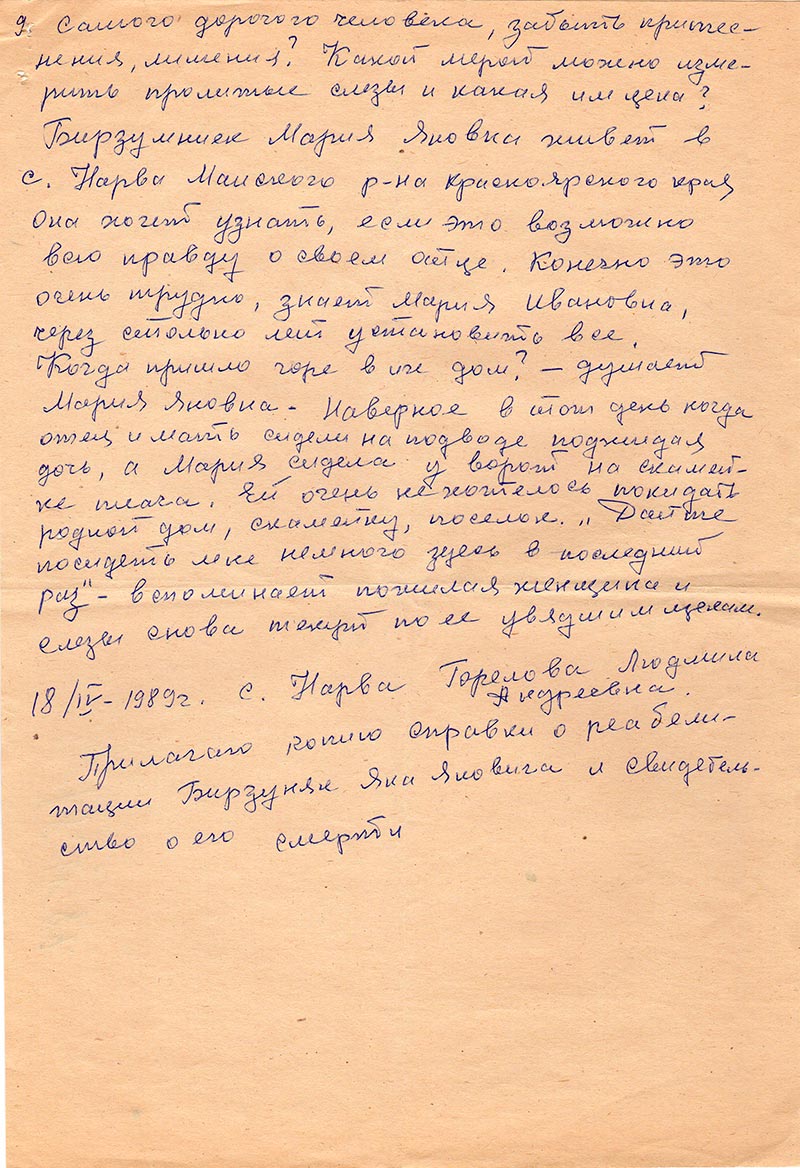 9. самого дорогого человека, забыть притес-
нения, лишения? Какой мерой можно изме-
рить пролитые слезы и какая им цена?
Бирзумниек Мария Яновна живет в
с. Нарва Манского р-на Красноярского края
Она хочет узнать, если это возможно
всю правду о своем отце. Конечно это
очень трудно, знает Мария Ивановна,
через столько лет установить все.
Когда пришло горе в их дом? – думает
Мария Яновна – Наверное в тот день когда
отец и мать сидели на подводе поджидая
дочь, а Мария сидела у ворот на скамей-
ке плача. Ей очень не хотелось покидать
родной дом, скамейку, поселок. „Дайте
посидеть мне немного здесь в последний
раз" – вспоминает пожилая женщина и
слезы снова текут по ее увядшим щекам.
18/IV – 1989г. с. Нарва Горелова Людмила
Андреевна.
Прилагаю копию справки о реабели-
тации Бирзуняк Яна Яновича и свидетель-
ство о его смерти